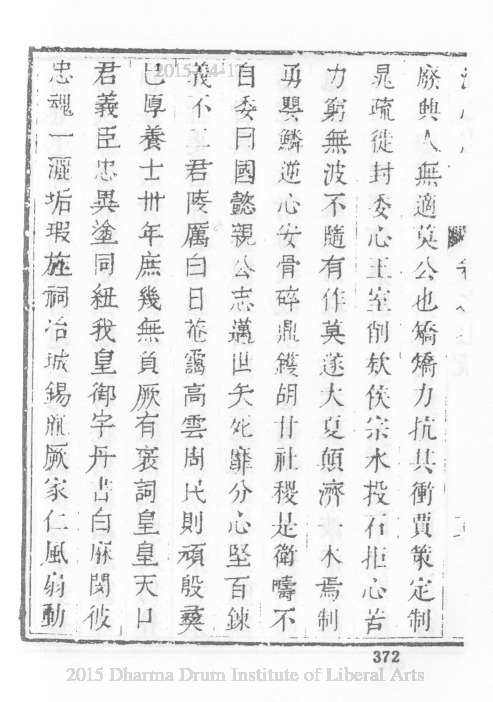 廢興人無適莫公也矯矯力抗其衝賈策定制
晁疏徙封委心王室削欸侯宗水投石拒心苦
力窮無波不隨有作莫遂大夏顛濟一木焉制
勇嬰鱗逆心安骨碎鼎鑊胡甘社稷是衛疇不
自委曰國懿親公志邁世矢死靡分心堅百鍊
義不二君陵厲白日菴靄高雲周民則頑殷獎
已厚養士卅年庶幾無負厥有褒詞皇皇天口
君義臣忠異塗同紐我皇御字丹書白麻閔彼
忠魂一灑垢瑕旌祠冶城錫胤厥家仁風扇動
2015-04-17
372
2015 Dharma Drum Institute of Liberal Arts